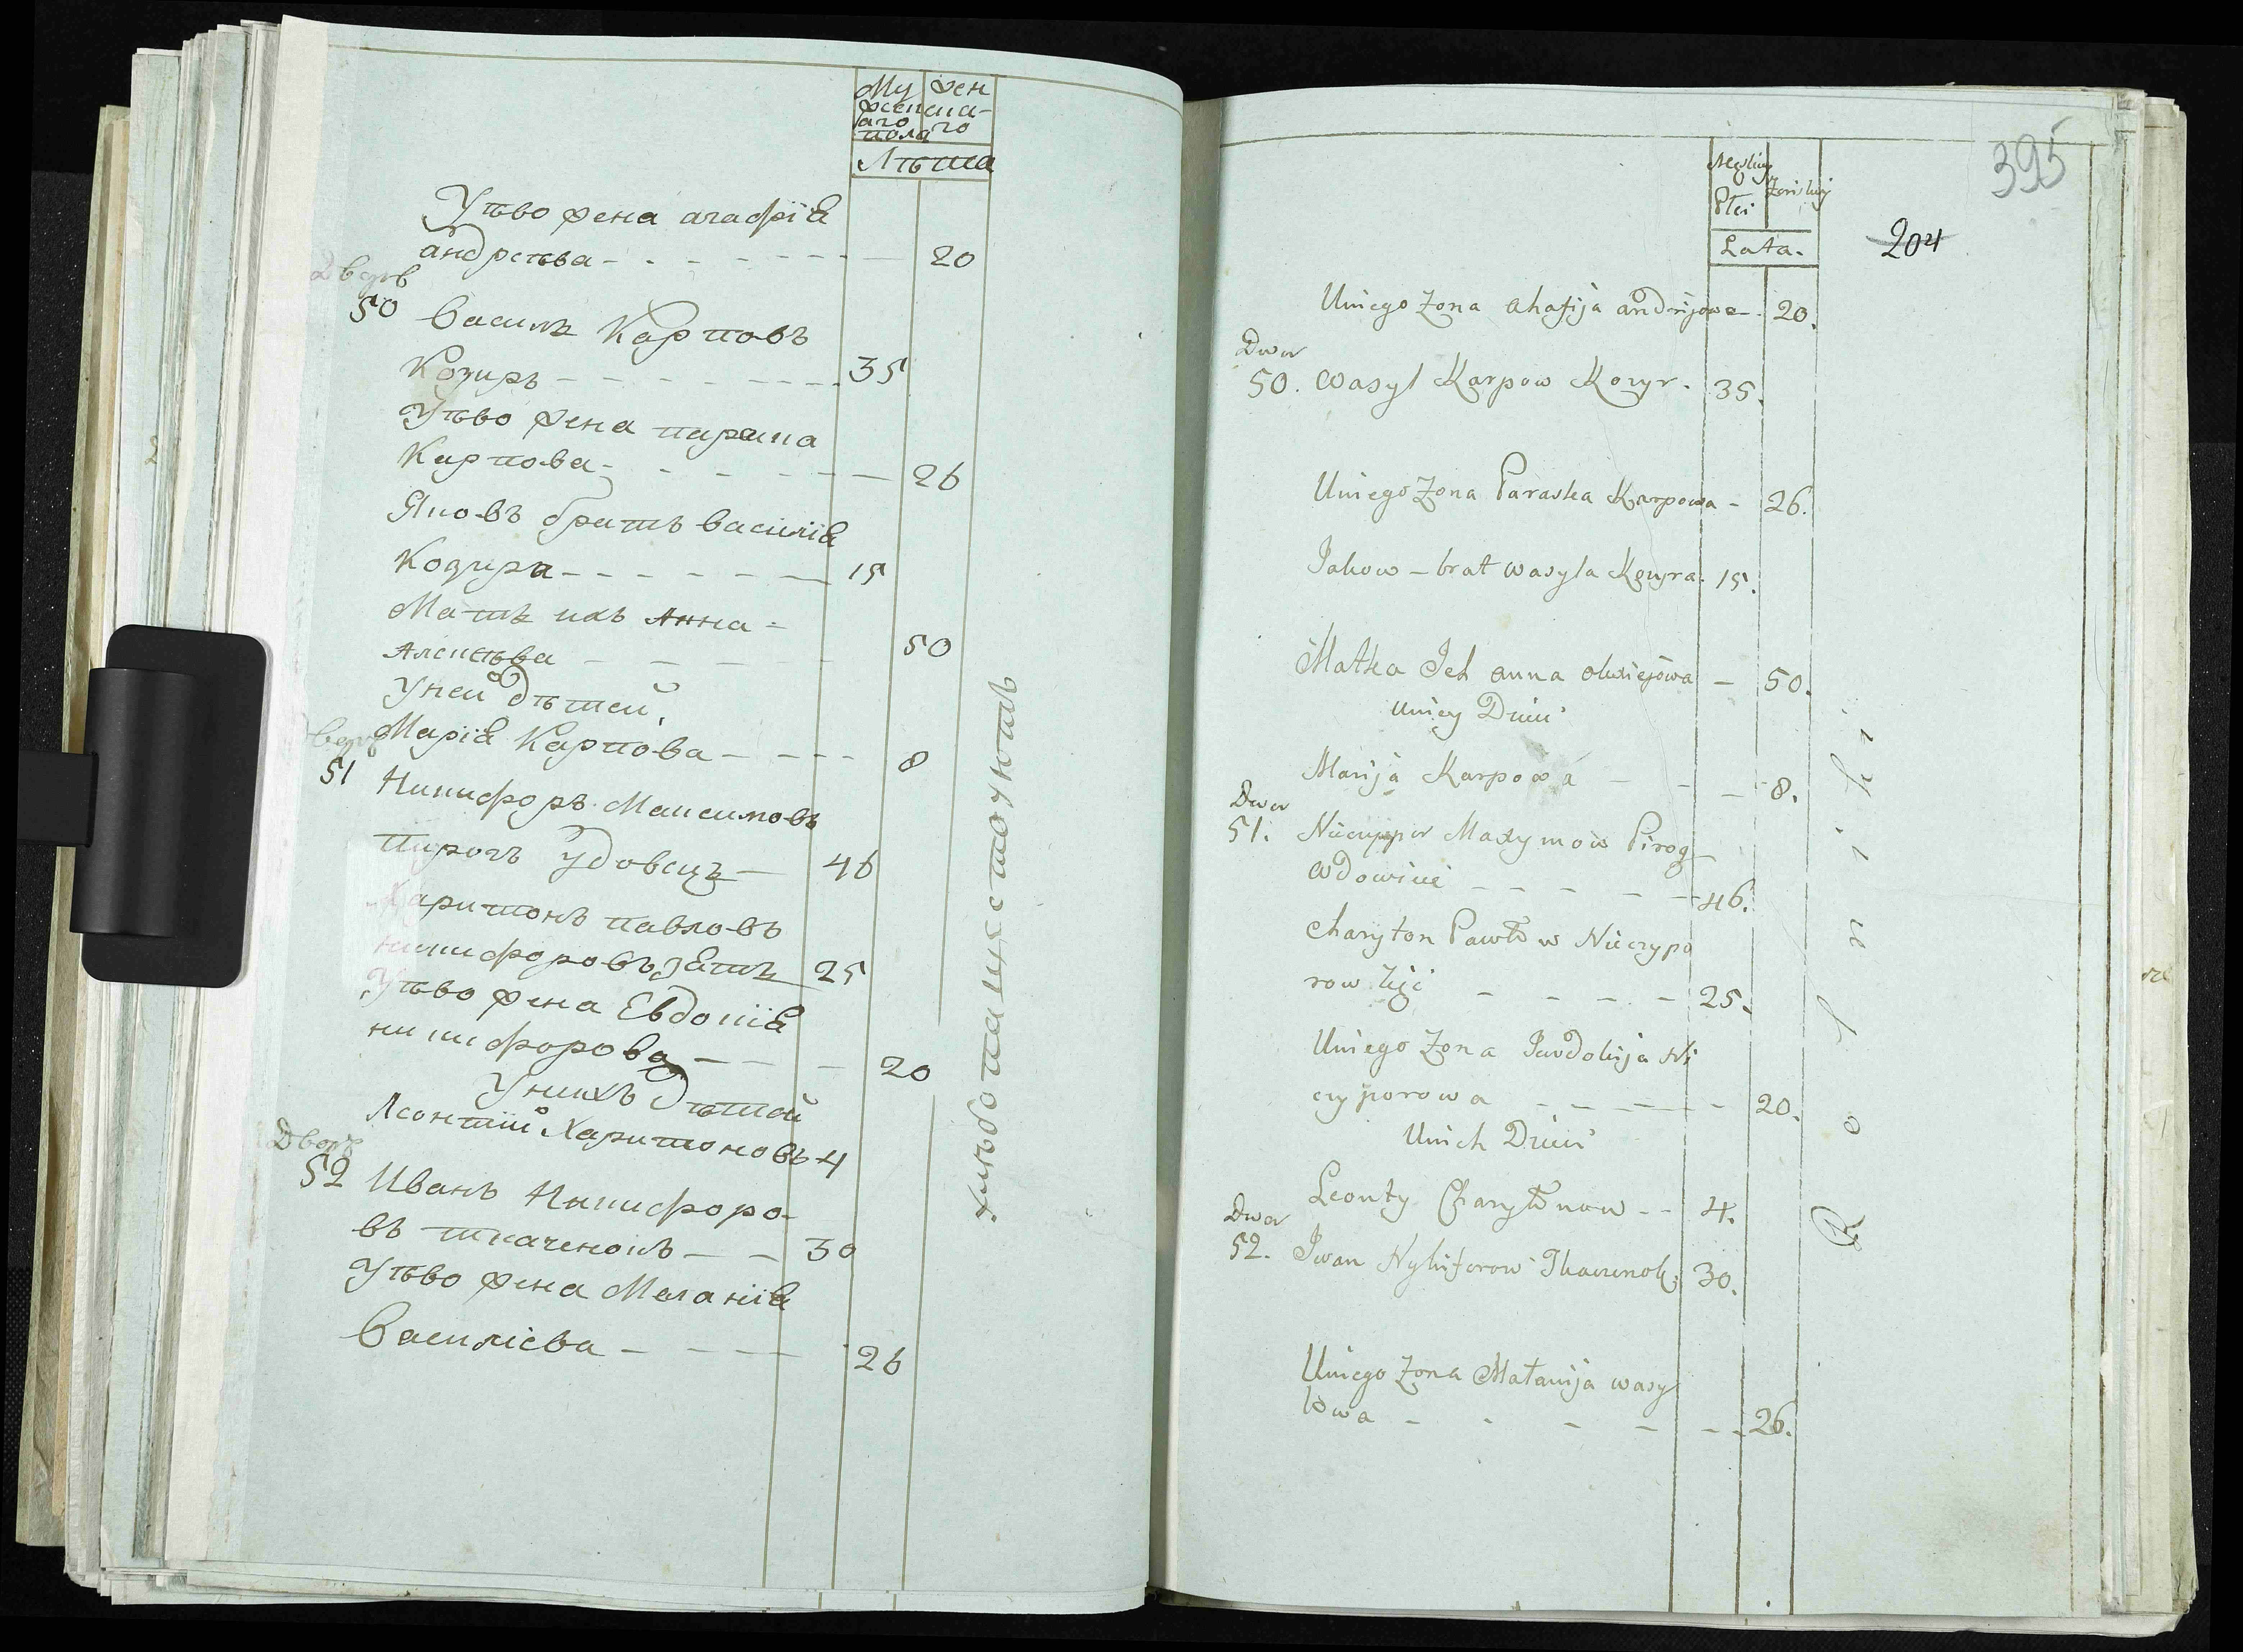 Му жен
жеска ска-
аго го
пола
Лѣта
Уѣво жена агафія
андрѣева - - - - - - - 20
Дворъ
50 Василь Карповъ
Козиръ - - - - - - - - 35
Уѣво жена параска
Карпова - - - - - - - 26
Яковъ братъ василія
Козиря - - - - - - - 15
Мать ихъ Анна =
Алексѣева - - - - - 50
Уней дѣтей,
Марія Карпова - - - - 8
дворъ
51 Никифоръ Максимовъ
пирогъ удовецъ - 46
Харитонъ павловъ
никифоровъ зять 25
Уѣво жена Евдокія
никифорова - - - 20
Унихъ дѣтей
Леонтій Харитоновъ 4
Дворъ
52 Иванъ Никифоро-
въ ткаченокъ - - 30
Уѣво жена Меланія
Василіева - - - - 26
хлѣбопашествуютъ
395
204
Męzkiej żeńskiej
Płci
Lata.
Uniego Zona ahafija andrijowa - 20.
Dwor
50. Wasyl Karpow Kozyr. 35.
Uniego Zona Paraska Karpowa - 26.
Jakow - brat wasyla Kozyra. 15.
Matka Ich anna olexiejowa - 50.
Uniey Dzieci
Marija Karpowa - - - 8.
Dwor
51. Niczypor Maxymow Pirog
Wdowiec - - - - - 46.
Charyton Pawłow Niczypo
row Zięć - - - - 25.
Uniego Zona Jawdokija Ni
czyporowa - - - - - 20.
Unich Dzieci
Leonty Charytonow - - 4.
Dwor
52. Iwan Nykiforow Tkaczenok. 30.
Uniego Zona Małanija wasy
lowa - - - - - - 26.
Rolniki.